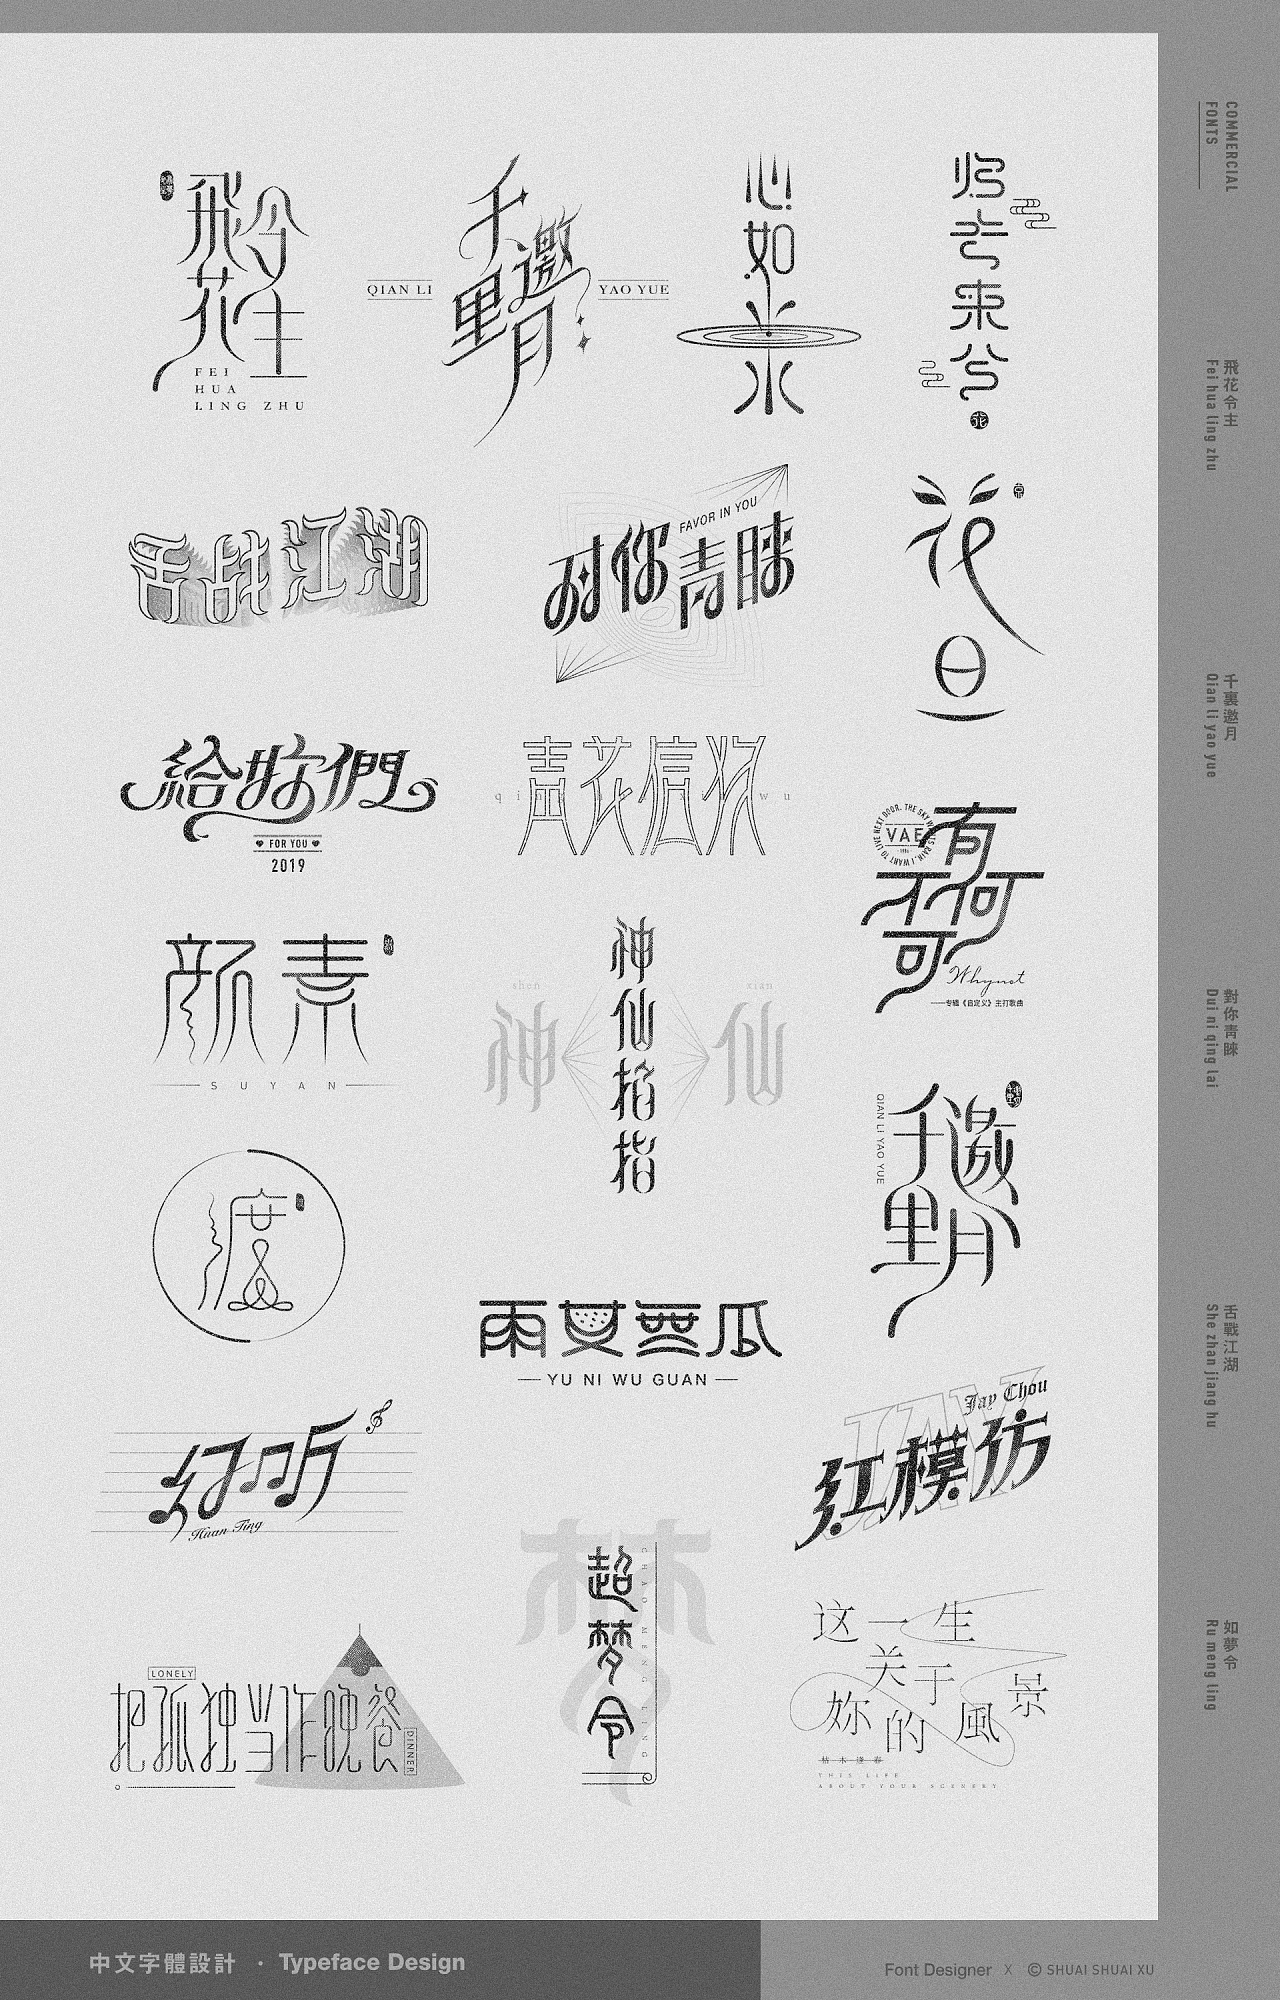 COMMERCIAL
FONTS
飛花令主
FEI
HUA
LING ZHU
千里邀月
QIAN LI
YAO YUE
心如止水
归去来兮
舌战江湖
FAVOR IN YOU
对你青睐
花旦
給妳們
FOR YOU
2019
青花信物
qi
wu
VAE
有何不可
Whynot
专辑《自定义》主打歌曲
素颜
SUYAN
神仙
shen
xian
神仙掐指
千里邀月
QIAN LI YAO YUE
渡
雨女無瓜
YU NI WU GUAN
幻听
Huan Ting
JAY
Jay Chou
红模仿
梦
超梦令
CHAO MENG LING
LONELY
把孤独当作晚餐
DINNER
这一生
关于
妳的風景
枯木逢春
THIS LIFE
ABOUT YOUR SCENERY
飛花令主
Fei hua ling zhu
千裏邀月
Qian li yao yue
對你青睞
Dui ni qing lai
舌戰江湖
She zhan jiang hu
如夢令
Ru meng ling
中文字體設計 · Typeface Design
Font Designer X © SHUAI SHUAI XU